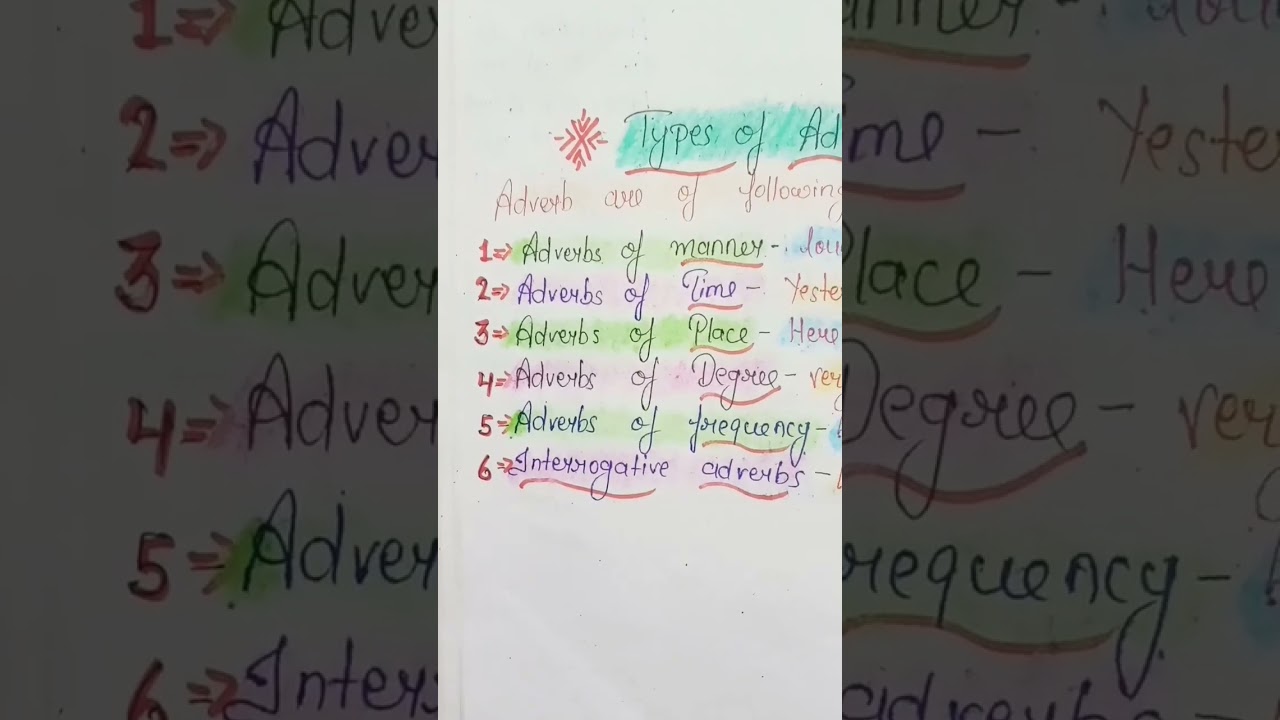 Types of Ad
Adverb are of following
1⇒ Adverbs of manner - lou
2⇒ Adverbs of Time - Yeste
3⇒ Adverbs of Place - Here
4⇒ Adverbs of Degree - ver
5⇒ Adverbs of frequency -
6⇒ Interrogative adverbs -